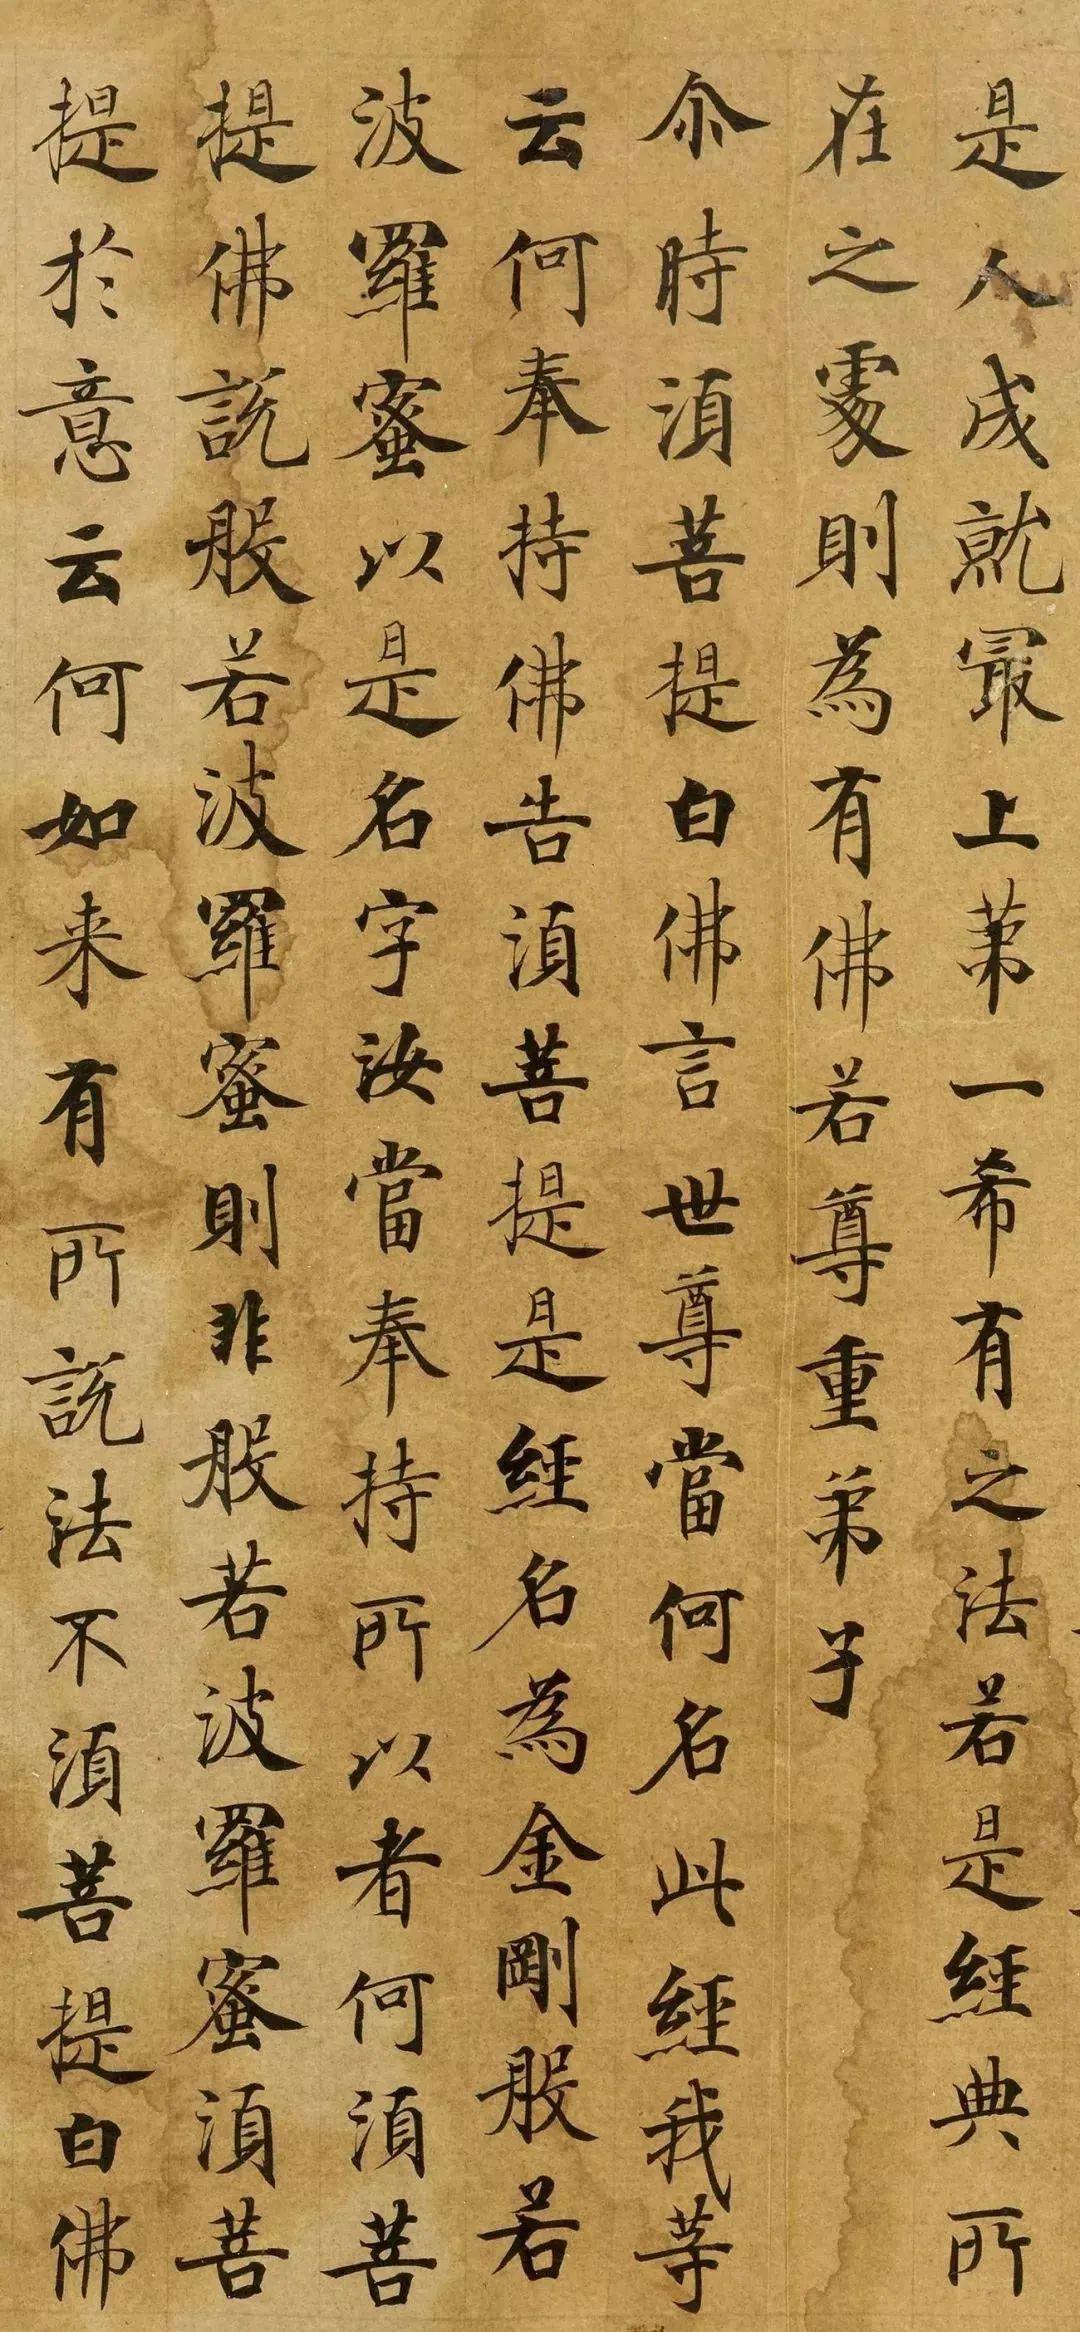 是人成就冣上苐一希有之法若是經典所
在之處則為有佛若尊重弟子
尒時湏菩提白佛言世尊當何名此經我等
云何奉持佛告湏菩提是經名為金剛般若
波羅蜜以是名字汝當奉持所以者何湏菩
提佛説般若波羅蜜則非般若波羅蜜湏菩
提於意云何如来有所説法不湏菩提白佛